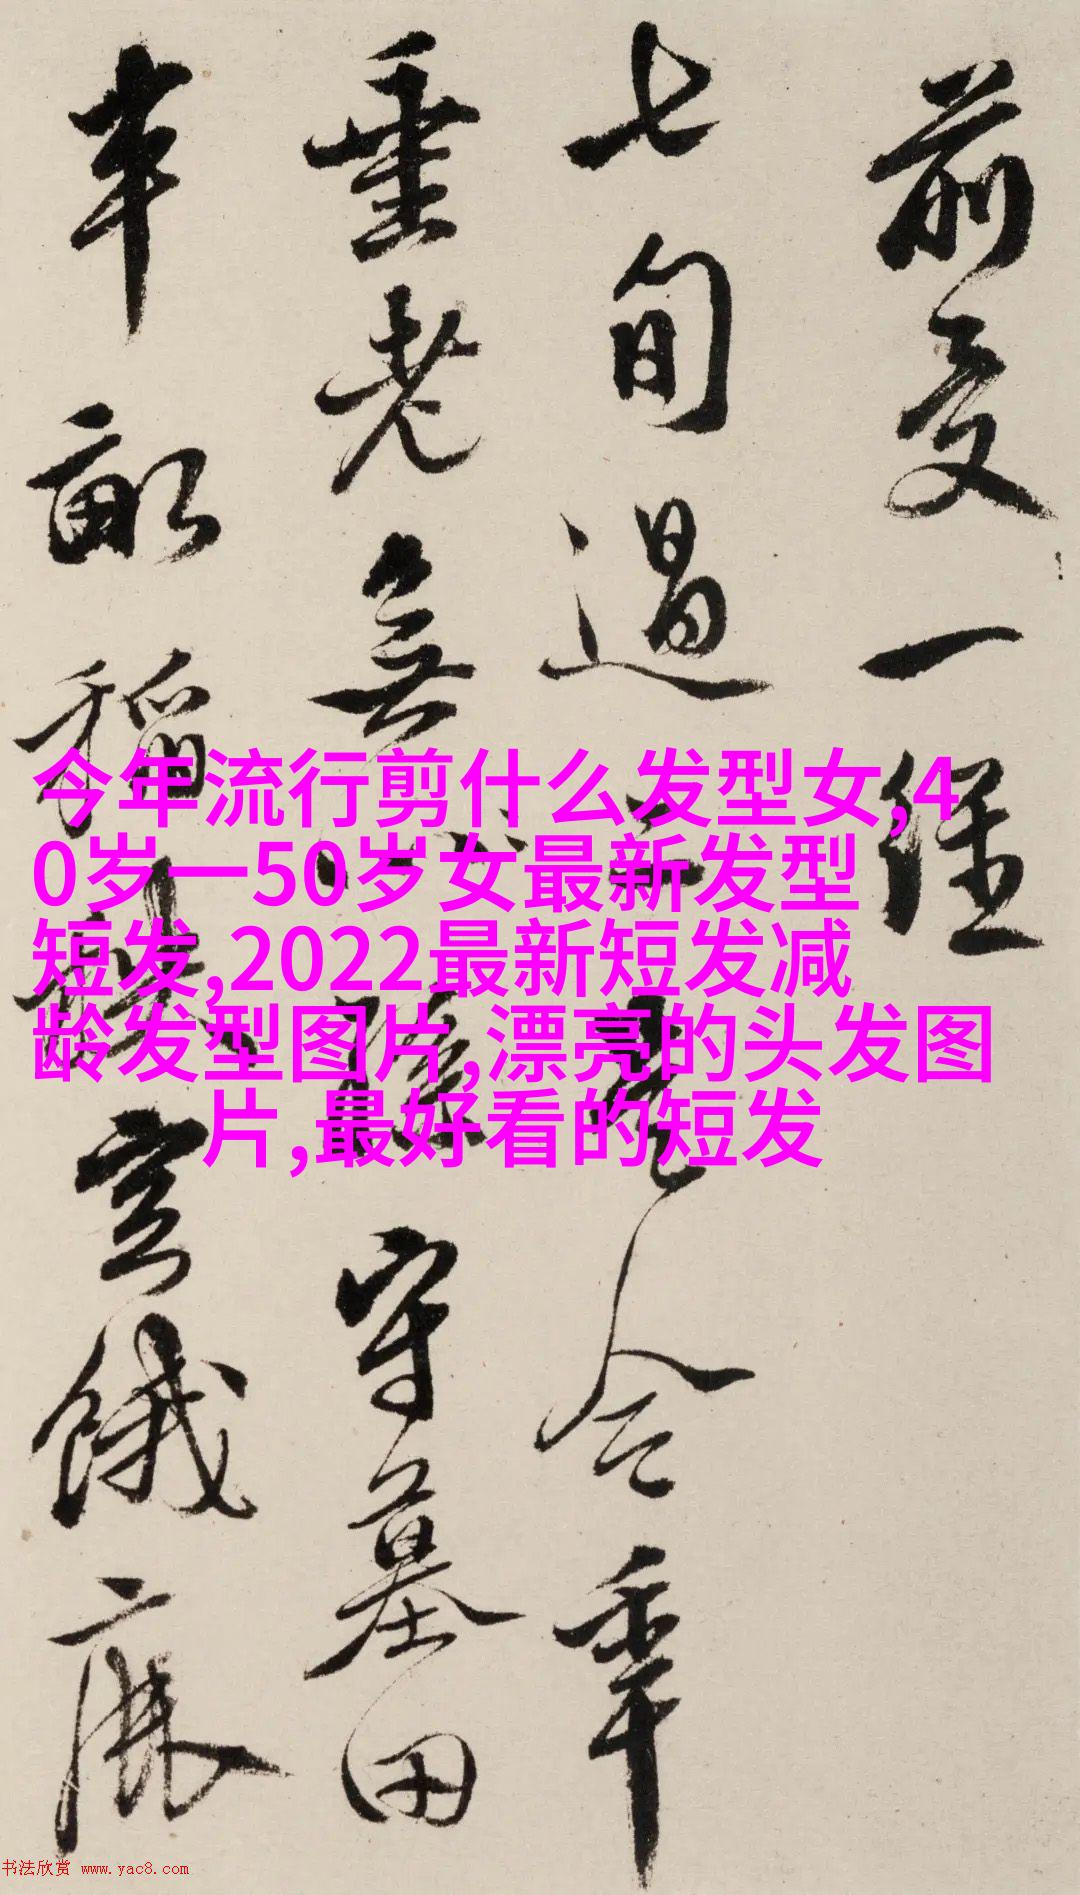 前受一經
七旬過二是今年
垂老無孫守墓田
半畝稻空餓
今年流行剪什么发型女,4
0岁一50岁女最新发型
短发,2022最新短发减
龄发型图片,漂亮的头发图
片,最好看的短发
书法欣赏 www.yac8.com